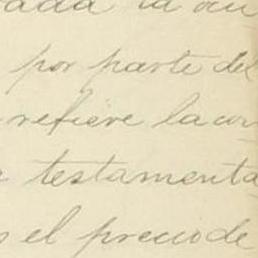 por parte del
refiere la cor
testamenta
el precio de